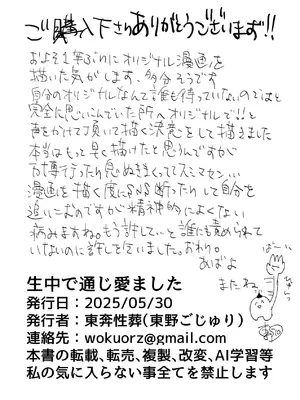 ご購入下さりありがとうございます!!
およそ1年ぶりにオリジナル漫画を
描いた気がします。多分そうです
自分のオリジナルなんて誰も待っていないのではと
完全に思いこんでいた所へオリジナルで!!と
声をかけて頂いて描く決意をして描きました
本当はもっと早く描けたと思うんですが
万博行ったり息ぬきまくってスミマセン…
漫画を描く度にSNS断ったりして自分を
追いこむのですが精神的によくない
病みますね。もう許して…と誰にも責められて
いないのに許しを乞いました。おわり。
あばよ
またね
ばーい
生中で通じ愛ました
発行日：2025/05/30
発行者：東奔性葬(東野ごじゅり)
連絡先：wokuorz@gmail.com
本書の転載、転売、複製、改変、AI学習等
私の気に入らない事全てを禁止します